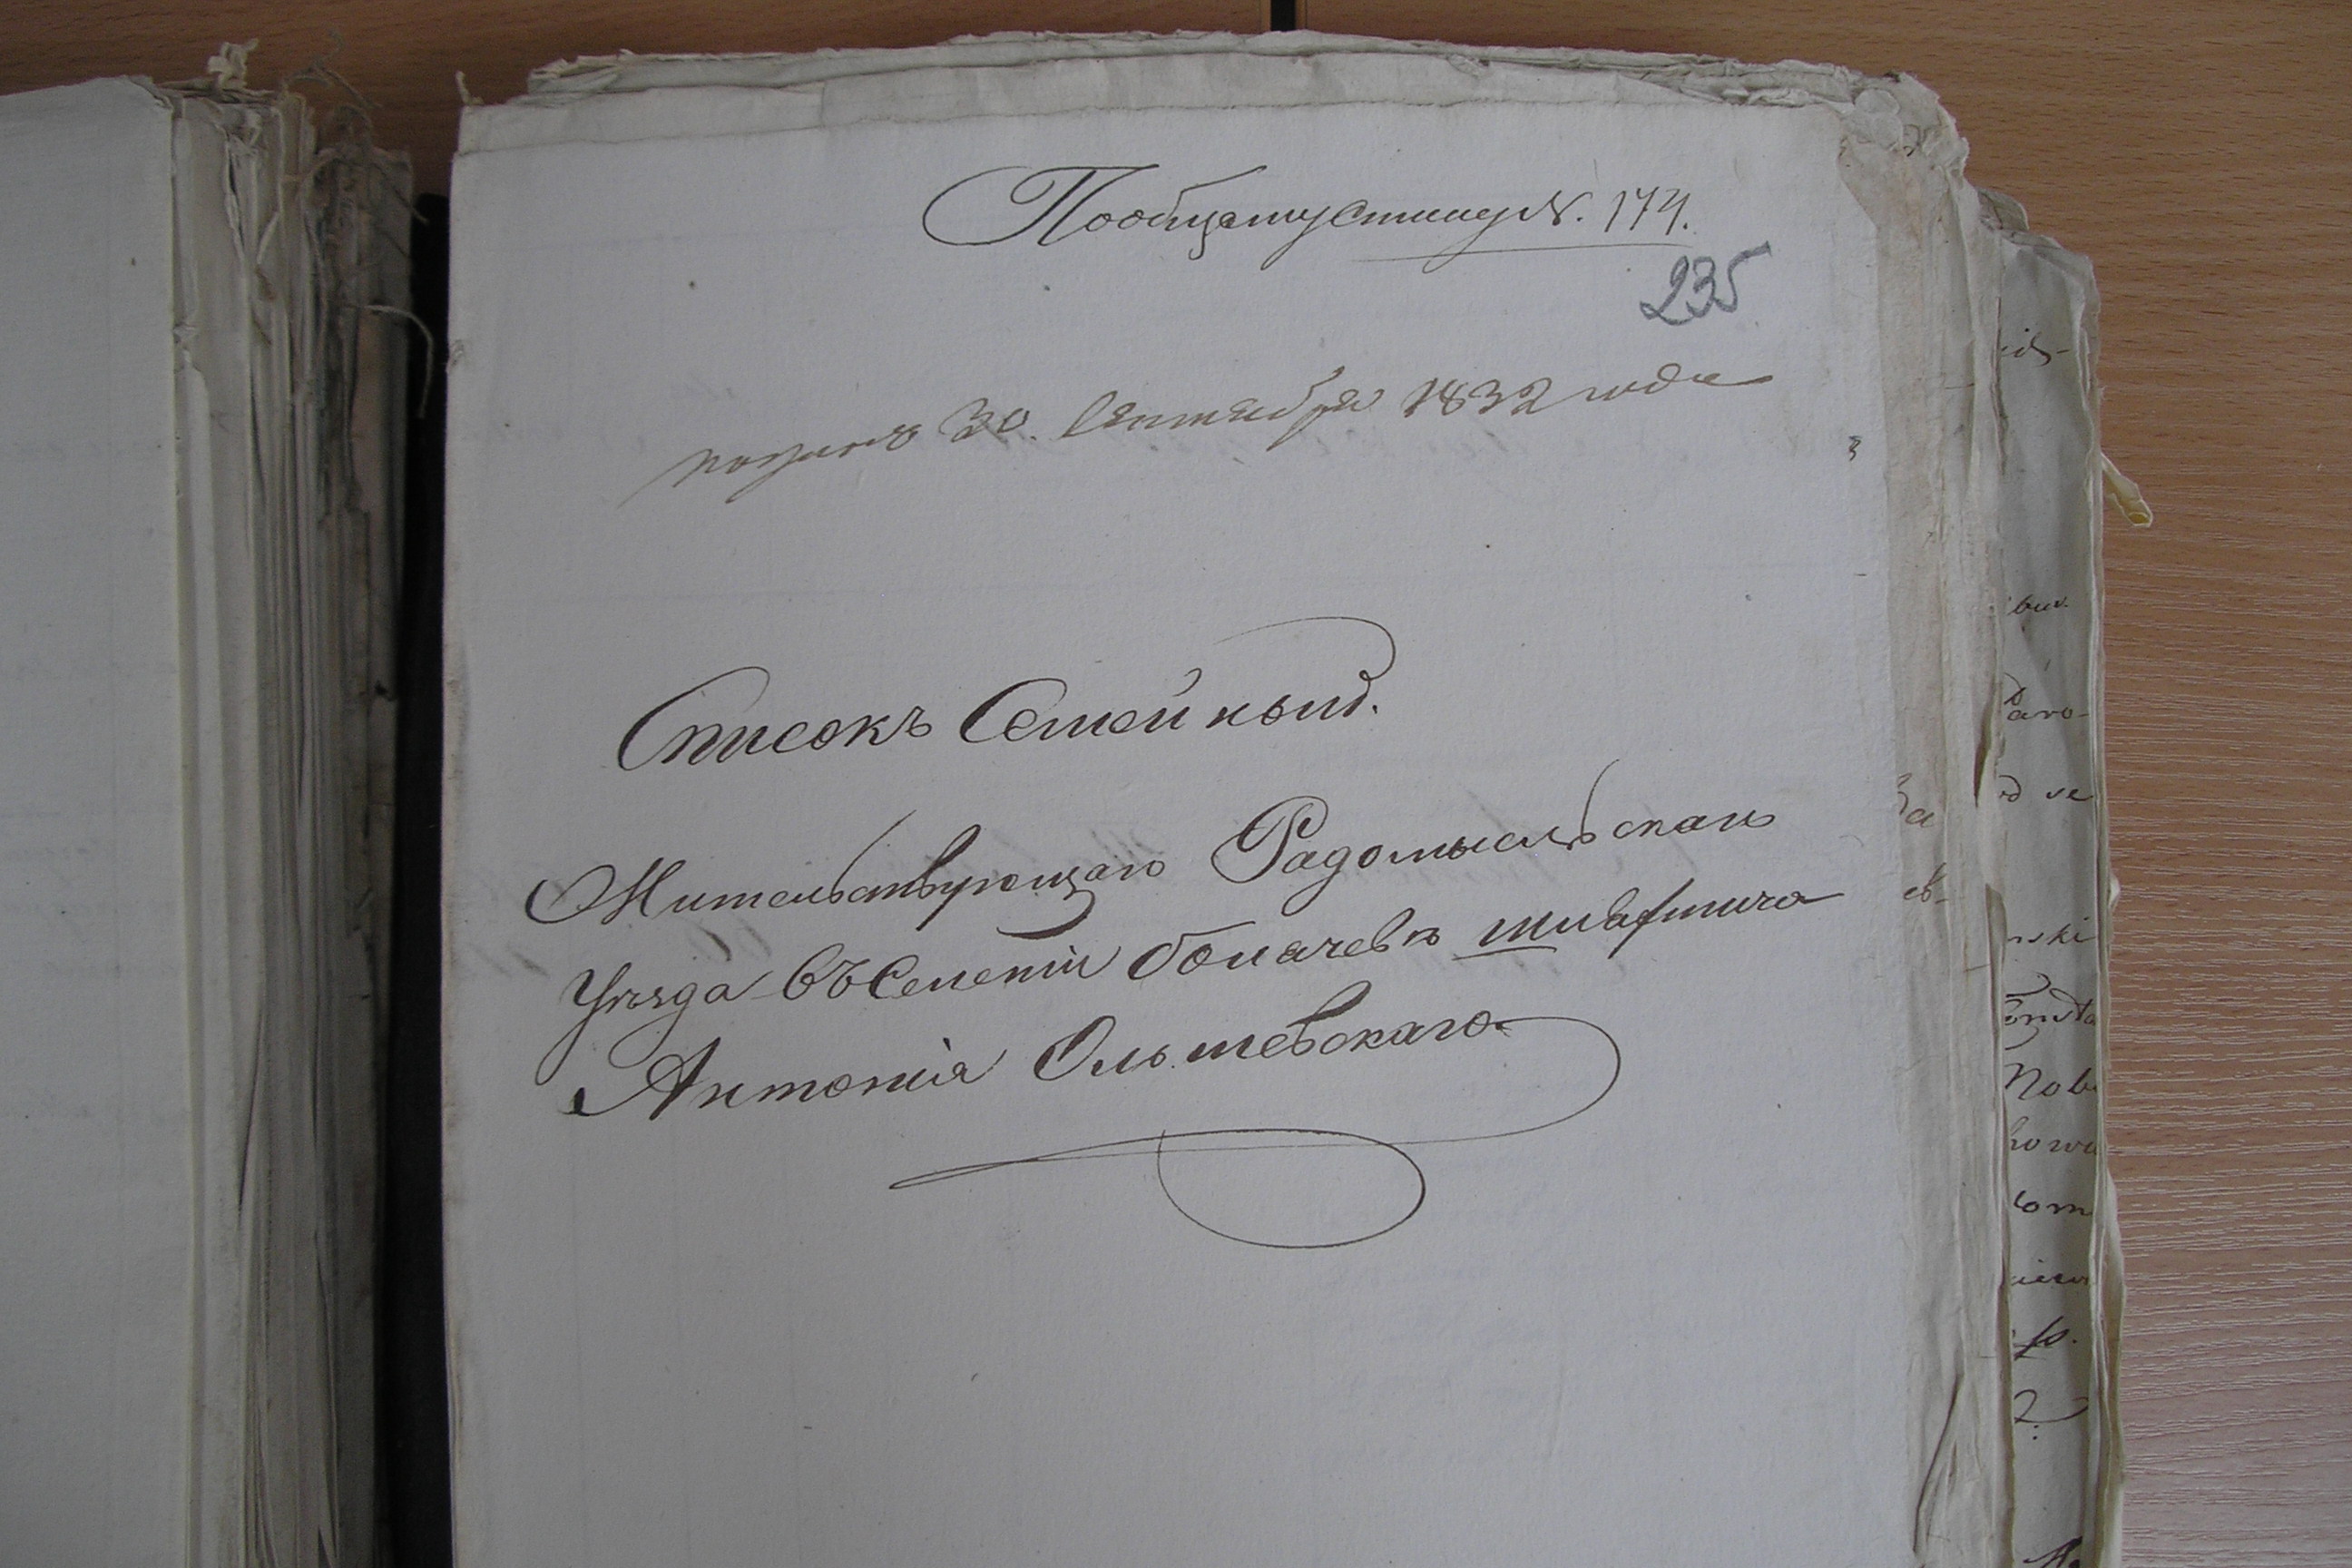 Пообщему Списку №. 174.
235
получ 30. Сентября 1832 года
Списокъ Семейный.
Жительствующаго Радомысльскаго
Уѣзда въ Селеніи шляхтича
Антонія Ольшевскаго